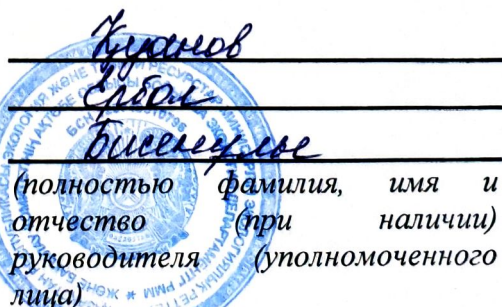 Қуанов
Ербол
Бисенұлы
(полностью фамилия, имя и
отчество (при наличии)
руководителя (уполномоченного
лица)